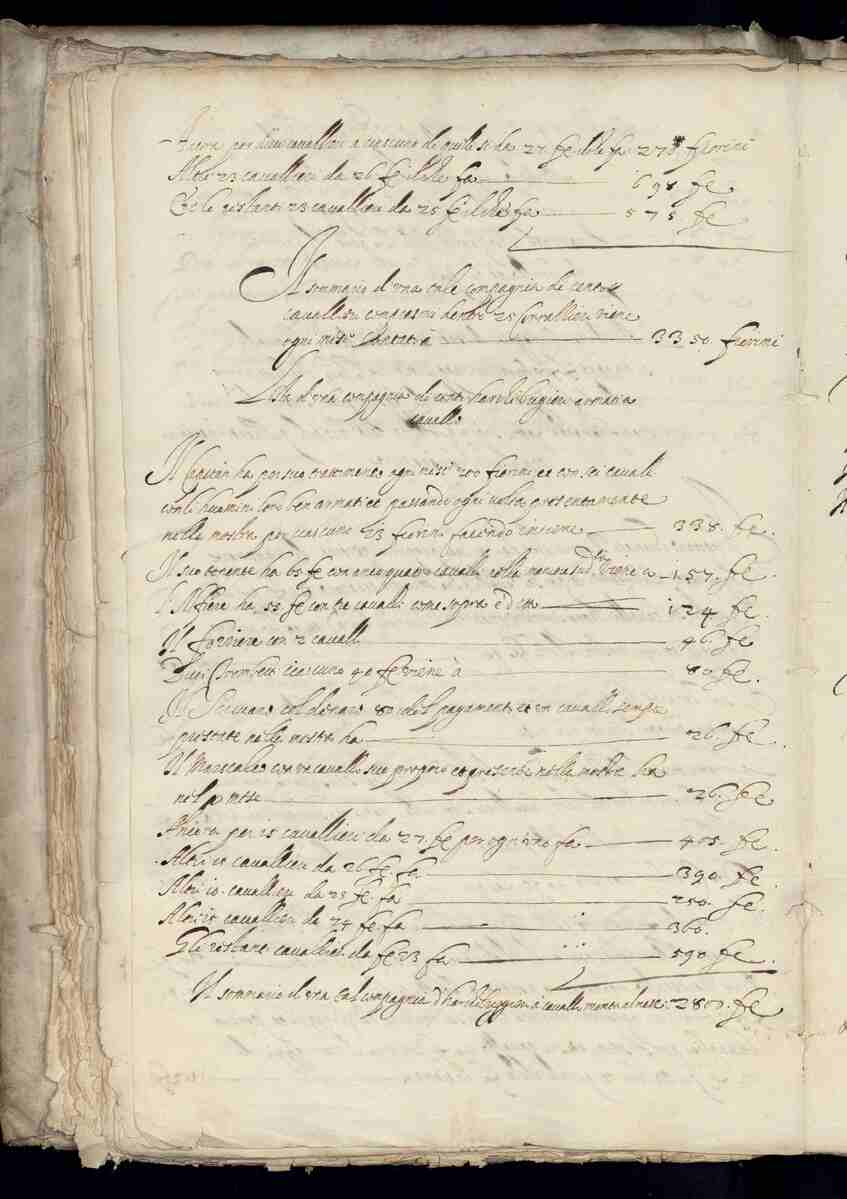 Ancora per dieci cavallieri a ciascuno de quelli si da 27 fe il che fa 270. fiorini
Altri 23 cavallieri da 26 fe il che fa 698 fe
Et le restanti 23 cavallieri da 25 fe il che fa 575 fe
Il sommario d'una tale compagnia de cento
cavallieri compresovi dentro 25 Corrallieri viene
ogni mese 3350. fiorini
Lista d'una compagnia di cento harchibugieri armati a
cavallo
Il Capitan ha per suo trattimento ogni mese 200 fiorini et con sei cavalli
con li huomini loro ben armati et passando ogni volta presentamente
nelle mostra per ciascuno 23 fiorini facendo insieme 338. fe.
Il suo tenente ha 65 fe con anco quatro cavalli nella maniera sud.ta viene a 157. fe
L'Alfiere ha 55 fe con tre cavalli come sopra è ditto 124 fe.
Il forriere con 2 cavalli 46. fe
Duoi Trombetti ciascuno 40 fe viene à 80 fe.
Il Scrivano col denaro 80 delli pagamenti et un cavallo sempre
presente nelle mostra ha 26. fe.
Il Marescalco con un cavallo suo proprio et presente nelle mostre ha
nel mese 26. fe
Ancora per 15 cavallieri da 27 fe per ogniuno fa 405. fe
Altri 15 cavallieri da 26 fe fa 390. fe.
Altri 10. cavallieri da 25 fe. fa 250. fe.
Altri 15 cavallieri da 24 fe. fa 360.
Gli restanti cavallieri da fe 23 fa 598 fe.
Il sommario d'una tal compagnia d'harchibuggieri à cavallo monta al mese: 2801. fe